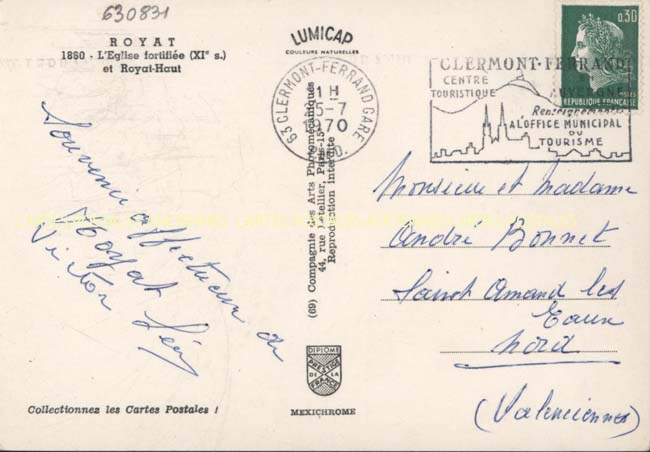 630831
ROYAT
1860 - L'Eglise fortifiée (XIe s.)
et Royat-Haut
LUMICAP
COULEURS NATURELLES
63 CLERMONT-FERRAND GARE
15-7
1970
CLERMONT-FERRAND
CENTRE
TOURISTIQUE
AUVERGNE
Renseignements
A L'OFFICE MUNICIPAL
DU
TOURISME
0,30
POSTES
REPUBLIQUE FRANÇAISE
Souvenir affectueux de
Royat
Victor
(69) Compagnie des Arts Photomécaniques
44, rue Letellier, Paris-15e
Reproduction interdite
Monsieur et Madame
André Bonnet
Saint Amand les
Eaux
Nord
(Valenciennes)
DIPLOME
PRESTIGE
DE LA
FRANCE
MEXICHROME
Collectionnez les Cartes Postales !